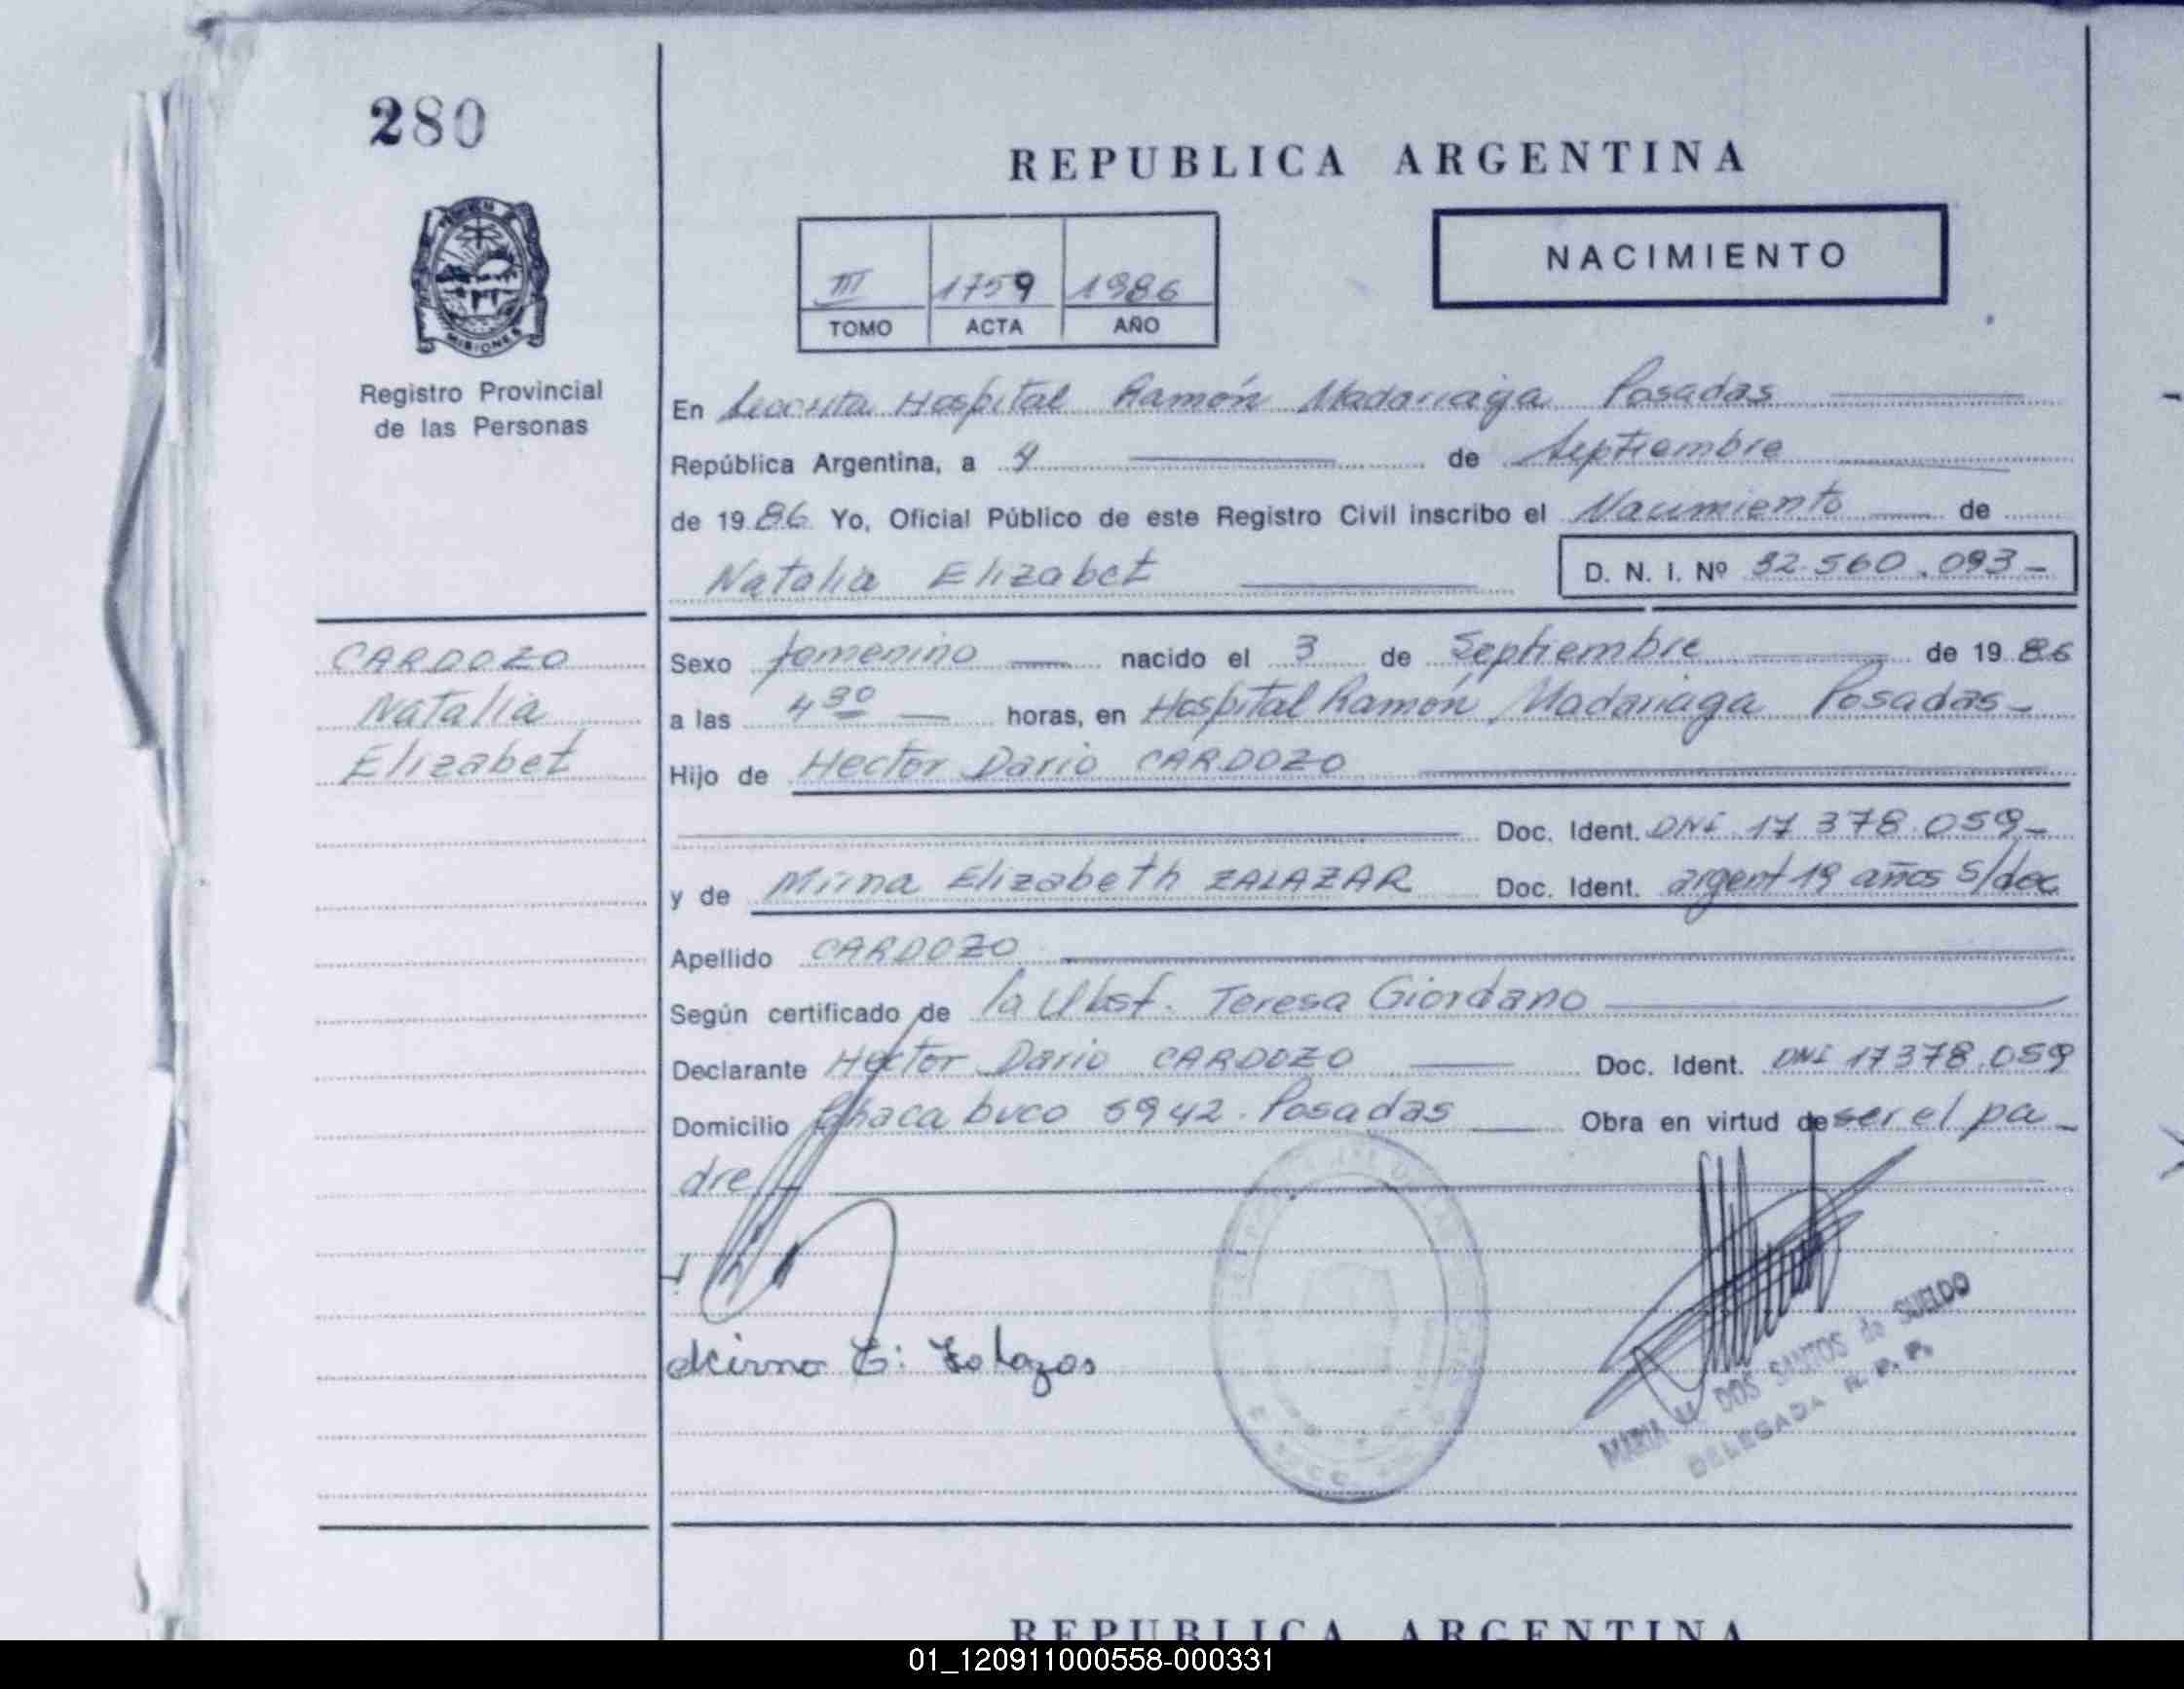 280
REPUBLICA ARGENTINA
NACIMIENTO
III 1759 1986
TOMO ACTA AÑO
MISIONES
Registro Provincial
de las Personas
En Hospital Ramón Madariaga Posadas
República Argentina, a 4 de Septiembre
de 1986 Yo, Oficial Público de este Registro Civil inscribo el Nacimiento de
Natalia Elizabet D. N. I. Nº 32.560.093-
CARDOZO
Natalia
Elizabet
Sexo femenino nacido el 3 de Septiembre de 1986
a las 4 30 horas, en Hospital Ramón Madariaga Posadas-
Hijo de Hector Dario CARDOZO
Doc. Ident. DNI 17 378.059-
y de Mirna Elizabeth ZALAZAR Doc. Ident. argent 19 años s/doc
Apellido CARDOZO
Según certificado de la Obst. Teresa Giordano
Declarante Hector Dario CARDOZO Doc. Ident. DNI 17378.059
Domicilio Chacabuco 5942. Posadas Obra en virtud de ser el pa-
dre
Mirna E. Zalazar
MARIA M. DOS SANTOS de SUELDO
DELEGADA R. P. P.
REPUBLICA ARGENTINA
01_120911000558-000331